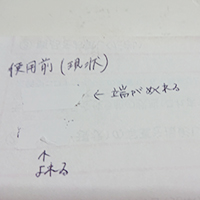 使用前(現状)
← 端がめくれる
↑
よれる